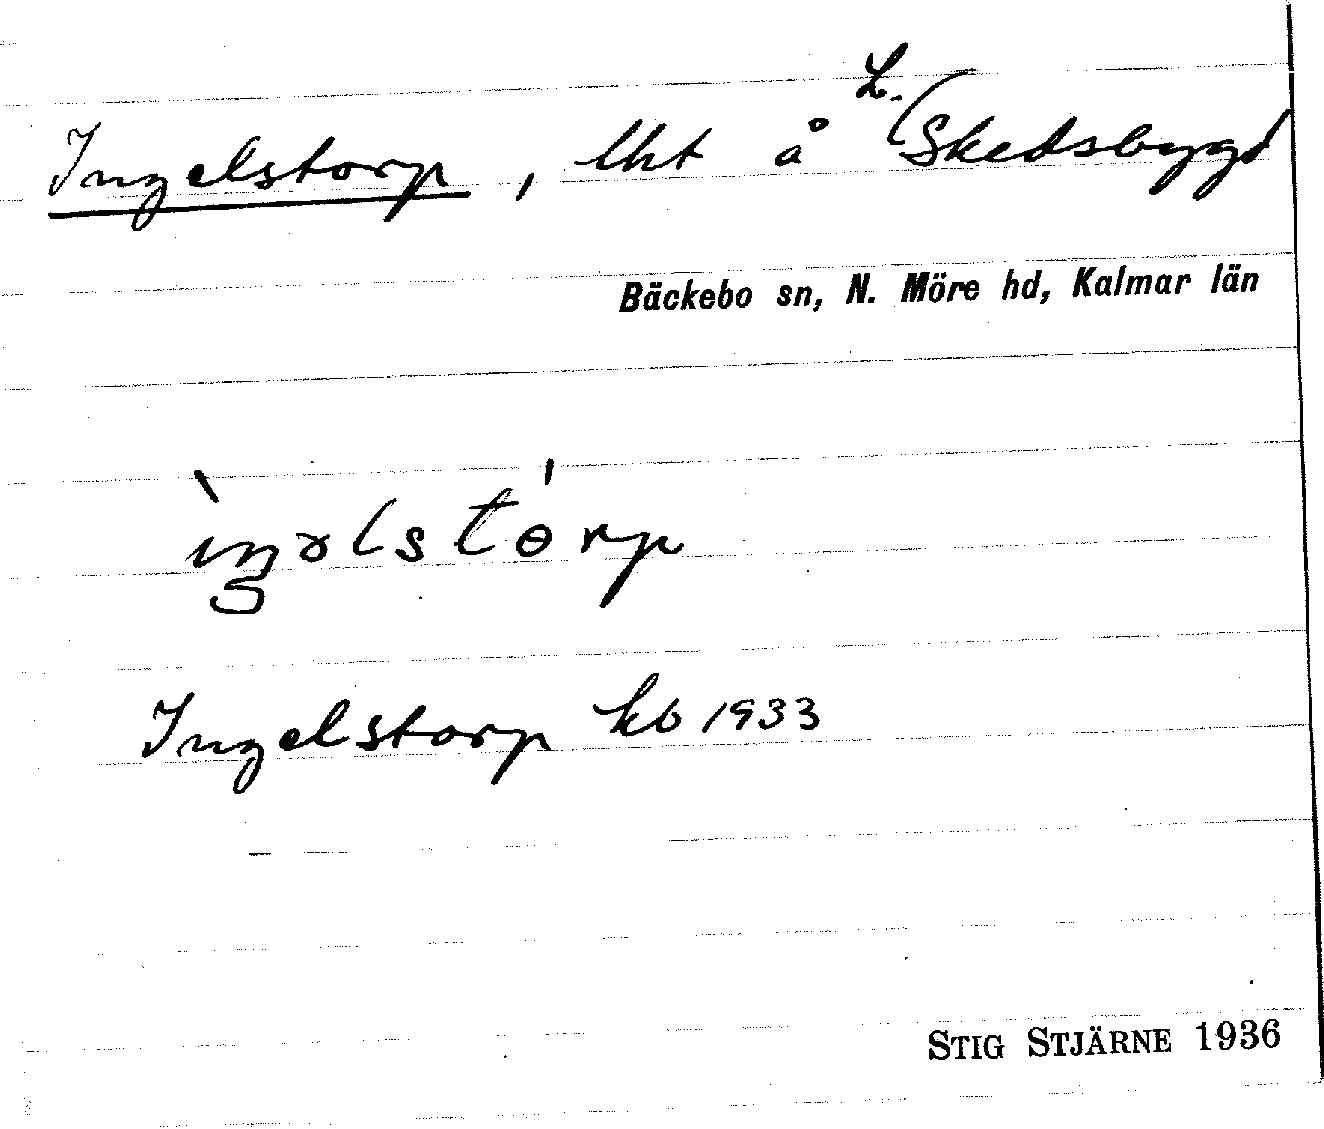 Ingelstorp, lht å L. Skedsbygd
Bäckebo sn, N. Möre hd, Kalmar län
Ingelstorp kb 1933
STIG STJÄRNE 1936